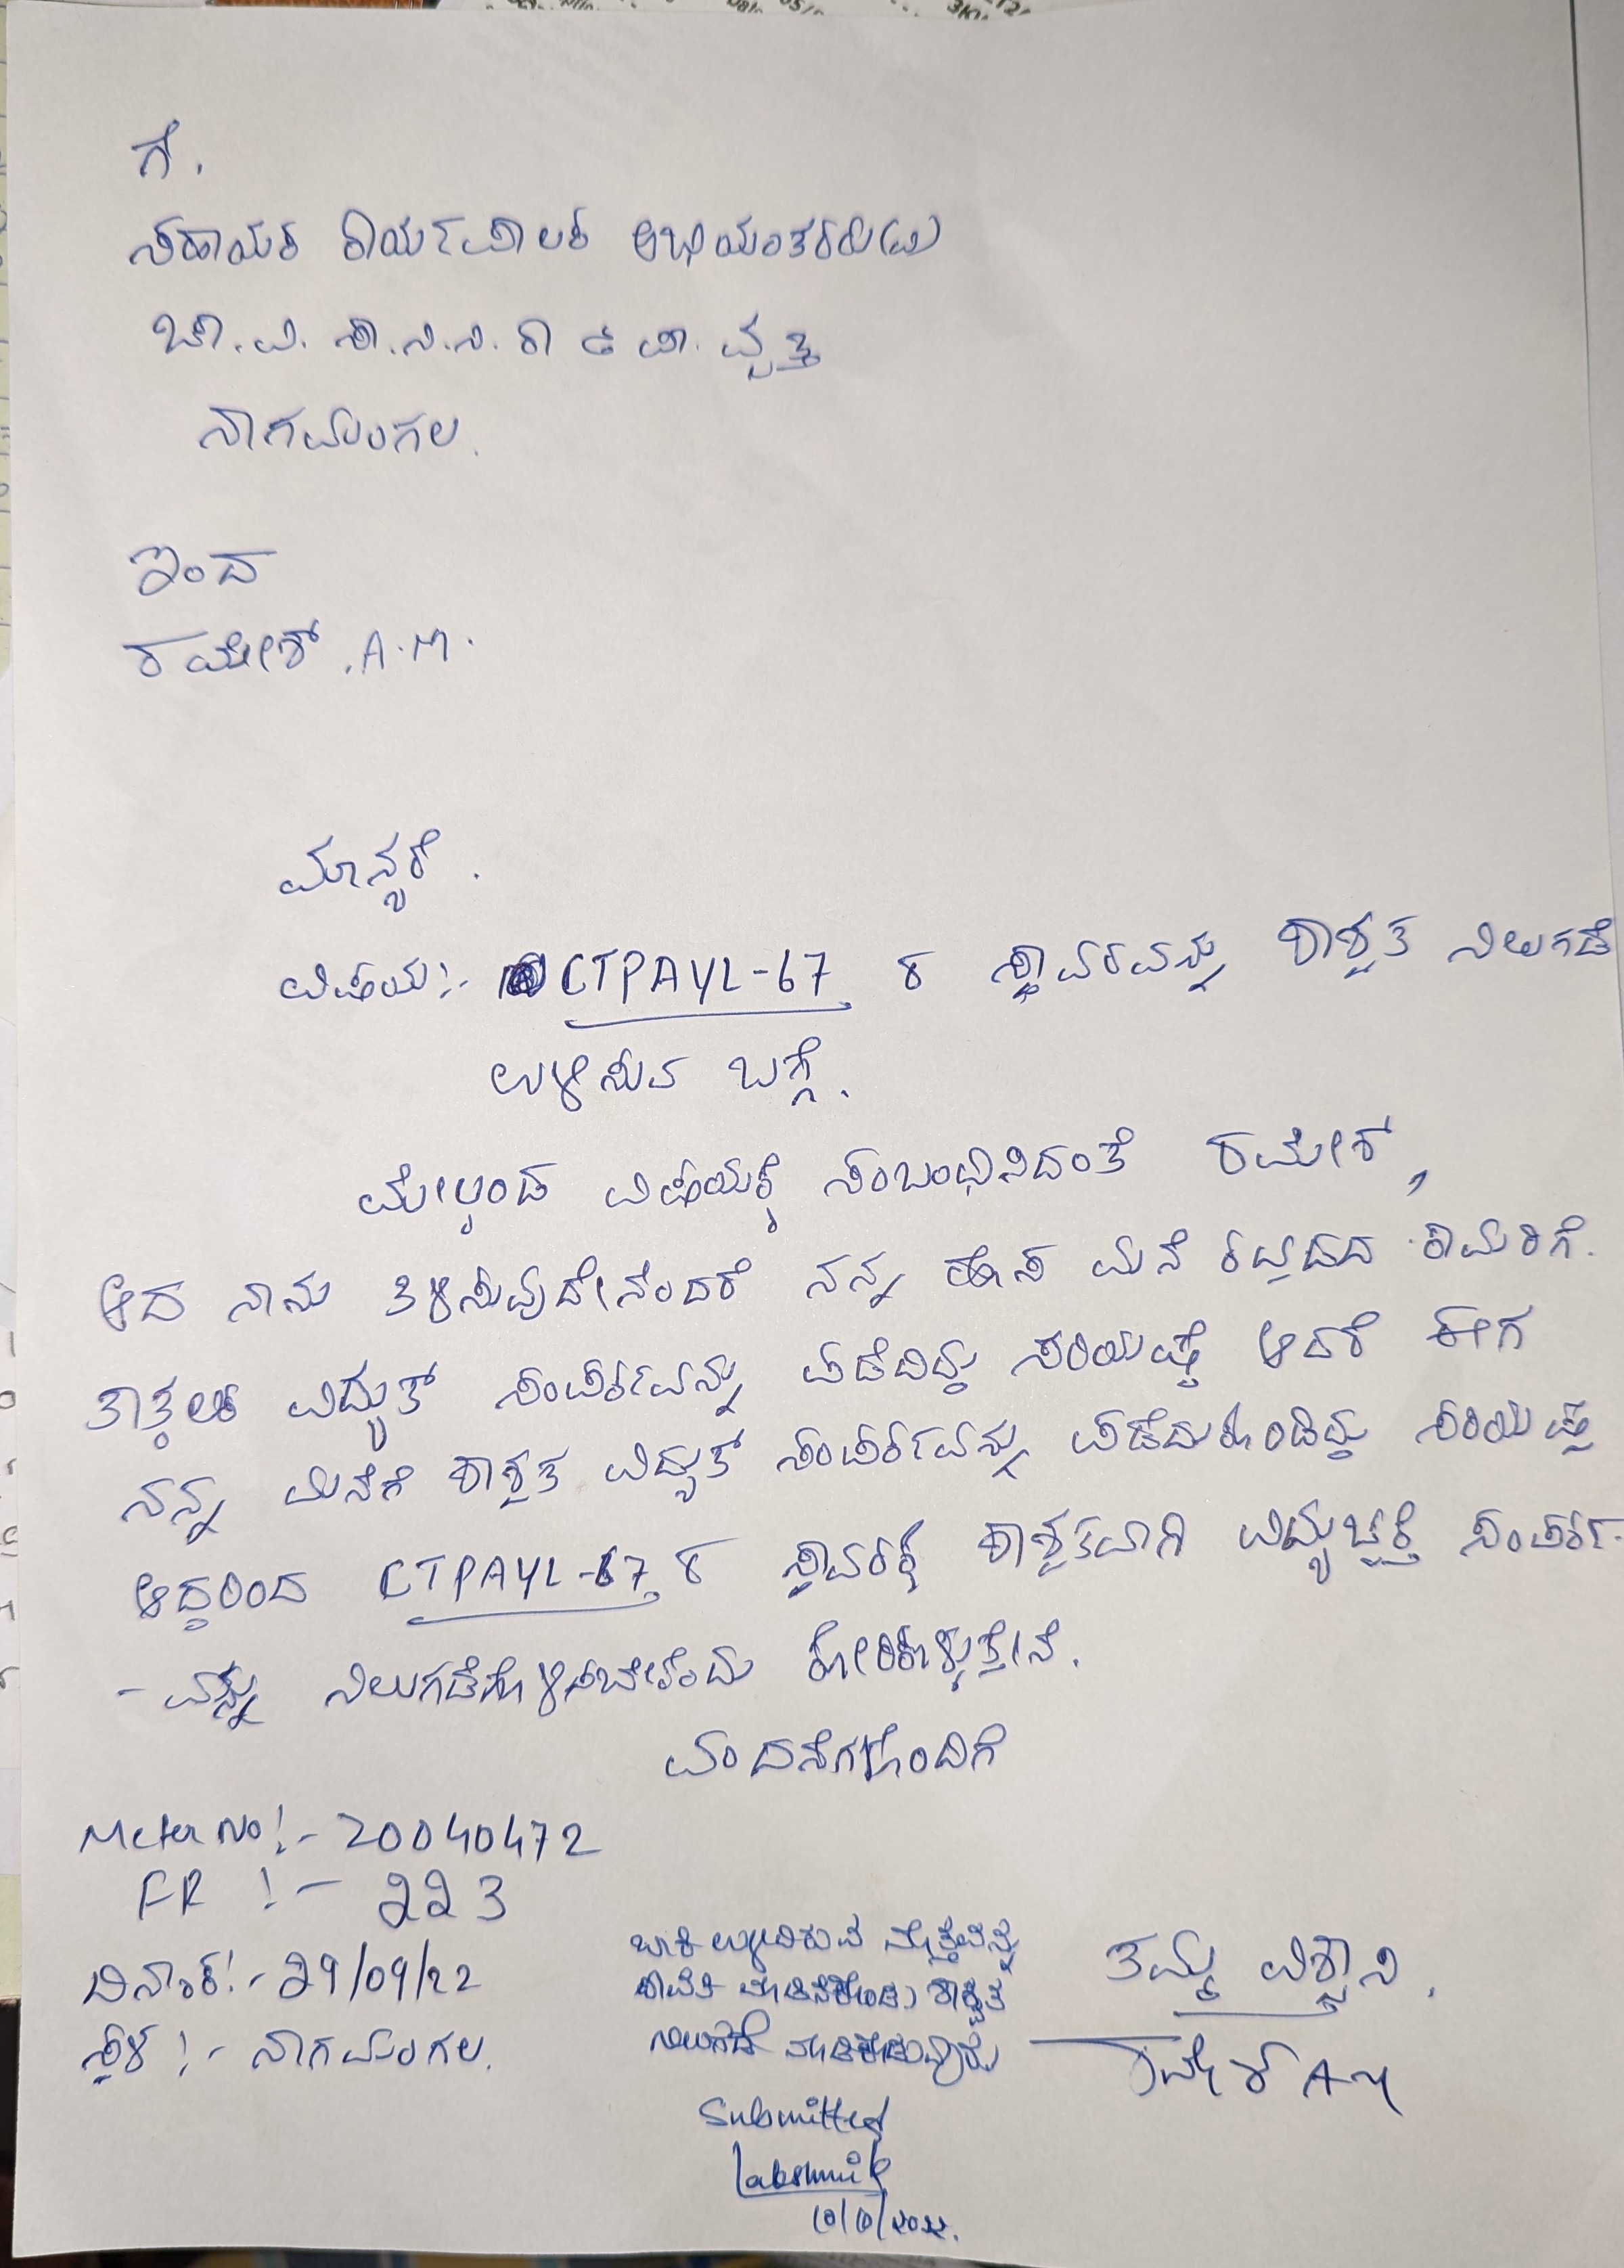 ಗೆ.
ಸಹಾಯಕ ಕಾರ್ಯಪಾಲಕ ಅಭಿಯಂತರರು(ವಿ)
ಚಾ.ವಿ.ಸ.ನಿ.ನಿ. ಕಾ & ಪಾ. ವೃತ್ತ
ನಾಗಮಂಗಲ.
ಇಂದ
ರಮೇಶ್ .A.M.
ಮಾನ್ಯರೆ.
ವಿಷಯ:- CTPAYL-67 ರ ಸ್ಥಾವರವನ್ನು ಶಾಶ್ವತ ನಿಲುಗಡೆ
ಉಳಿಸುವ ಬಗ್ಗೆ.
ಮೇಲ್ಕಂಡ ವಿಷಯಕ್ಕೆ ಸಂಬಂಧಿಸಿದಂತೆ ರಮೇಶ್,
ಆದ ನಾನು ತಿಳಿಸುವುದೇನೆಂದರೆ ನನ್ನ ಹೊಸ ಮನೆ ಕಟ್ಟಡದ ಕಾಮಗಾರಿಗೆ.
ತಾತ್ಕಲಿಕ ವಿದ್ಯುತ್ ಸಂಪರ್ಕವನ್ನು ಪಡೆದಿದ್ದು ಸರಿಯಷ್ಟೆ ಆದರೆ ಈಗ
ನನ್ನ ಮನೆಗೆ ಶಾಶ್ವತ ವಿದ್ಯುತ್ ಸಂಪರ್ಕವನ್ನು ಪಡೆದುಕೊಂಡಿದ್ದು ಸರಿಯಷ್ಟೆ
ಆದ್ದರಿಂದ CTPAYL-67 ರ ಸ್ಥಾವರಕ್ಕೆ ಶಾಶ್ವತವಾಗಿ ವಿದ್ಯುಚ್ಛಕ್ತಿ ಸಂಪರ್ಕ-
-ವನ್ನು ನಿಲುಗಡೆಗೊಳಿಸಬೇಕೆಂದು ಕೋರಿಕೊಳ್ಳುತ್ತೇನೆ.
ವಂದನೆಗಳೊಂದಿಗೆ
Meter No:- 20040472
FR :- 223
ದಿನಾಂಕ:- 29/09/22
ಸ್ಥಳ :- ನಾಗಮಂಗಲ.
ಬಾಕಿ ಉಳಿದಿರುವ ಮೊತ್ತವನ್ನು
ಪಾವತಿ ಮಾಡಿಸಿಕೊಂಡು ಶಾಶ್ವತ
ನಿಲುಗಡೆ
ತಮ್ಮ ವಿಶ್ವಾಸಿ.
ರಮೇಶ್ A M
Submitted
Lakshmi
10/10/2022.